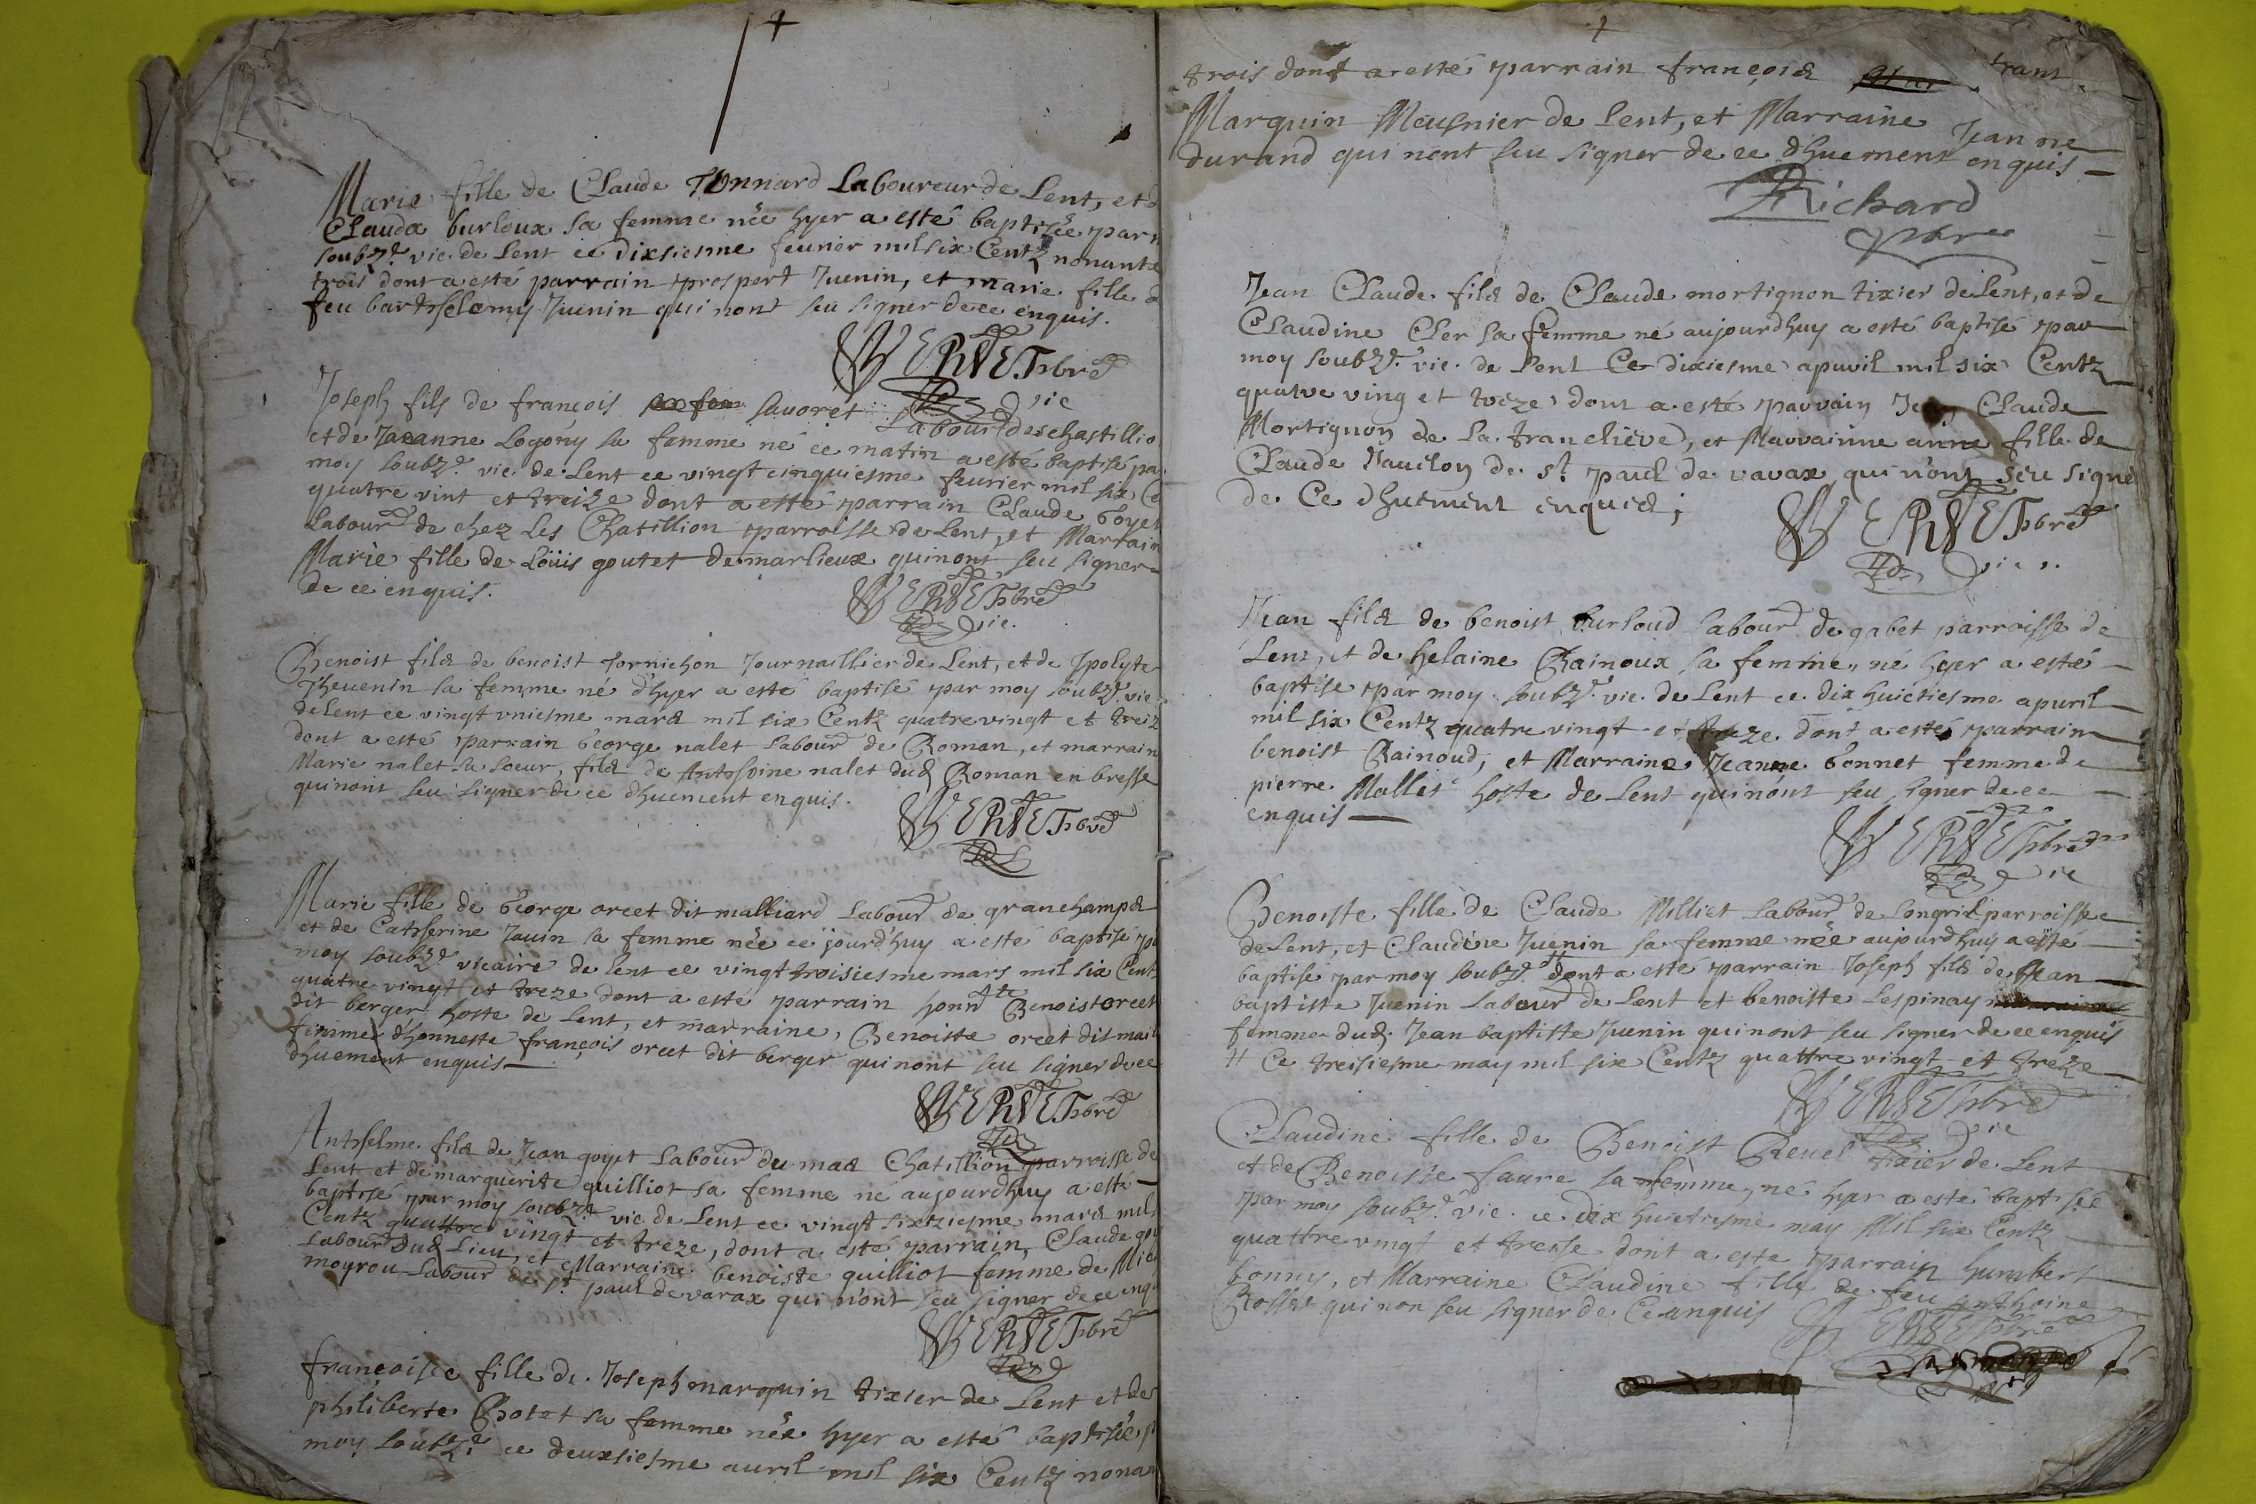 Marie fille de Claude Tonnard Laboureur de Lent, et d
Clauda burloux sa femme née hyer a esté baptisée par m
soubz.é vic. de Lent ce dixsiesme feurier mil six Centz nonante
trois dont a esté parrain prospert Juenin, et marie fille d
feu barthelemy Juenin qui nont seu signer de ce enquis.
VERVET pbre
vic
Joseph fils de françois sauoret Labour des chastillio
et de Jaeanne Logony sa femme né ce matin a esté baptisé pa
moy soubz.é vic. de Lent ce vingt cinquiesme feurier mil six C
quatre vint et treize dont a esté parrain Claude Goyet
Labour de chez Les Chatillion parroisse de Lent, et Marrain
Marie fille de Loüis goutet de marlieux qui nont seu signer
de ce enquis.
VERVET pbre
vic.
Benoist fils de benoist Tornichon Journallier de Lent, et de Jpolyte
Theuenin sa femme né d'hyer a esté baptisé par moy soubz.é vic
de Lent ce vingt vniesme mars mil six Centz quatre vingt et treiz
dont a esté parrain George nalet Labour de Roman, et marrain
Marie nalet sa soeur, fille de Anthoine nalet dud Roman en bresse
qui nont seu signer de ce dhuement enquis.
VERVET pbre
Marie fille de George orcet dit malliard Labour de granchamps
et de Catherine Jauin sa femme née ce jourd'huy a esté baptisé p
moy soubz.é vicaire de Lent ce vingt troisiesme mars mil six Cent
quatre vingt et treze dont a esté parrain honnte Benoist orcet
dit berger hoste de Lent, et marraine, Benoiste orcet dit mail
femme dhonneste françois orcet dit berger qui nont seu signer de ce
dhuement enquis
VERVET pbre
Anthelme fils de Jean goyet Labour du mas Chatillion parroisse de
Lent et de marguerite guilliot sa femme né aujourdhuy a esté
baptisé par moy soubz.é vic. de Lent ce vingt sixziesme mars mil
Centz quattre vingt et treze, dont a esté parrain, Claude goy
Labour dud Lieu, et Marraine benoiste guilliot femme de Mic
moyrou Labour de st paul de varax qui n'ont seu signer de ce enq
VERVET pbre
françoise fille de Joseph marquin tixier de Lent et de
philiberte Botet sa femme née hyer a esté baptisée p
moy soubz.é ce deuxsiesme auril mil six Centz nonan
trois dont a esté parrain françois
Marquin Meusnier de Lent, et Marraine Jeanne
durand qui nont seu signer de ce dhuement enquis
Richard
pbre
Jean Claude fils de Claude mortignon tixier de Lent, et de
Claudine Cler sa femme né aujourdhuy a esté baptisé par
moy soubz.é vic. de Lent Ce dixiesme apuril mil six Centz
quatre ving et treze dont a esté parrain Jean Claude
Mortignon de La trancliere, et Marrainne anne fille de
Claude Nauilon de st paul de varax qui n'ont seu signé
de Ce dhuement enquis;
VERVET pbre
vic.
Jean fils de benoist burloud labour de gabet parroisse de
Lent, et de helaine Rainoux sa femme, né hyer a esté
baptise par moy soubz.é vic. de Lent ce dix huictiesme apuril
mil six Centz quatre vingt et treze dont a esté parrain
benoist Rainoud, et Marraine Jeanne bonnet femme de
pierre Mallet hoste de Lent qui n'ont seu signer de ce
enquis
VERVET pbre
vic
Benoiste fille de Claude Milliet Labour de Longris parroisse
de Lent, et Claudine Juenin sa femme née aujourdhuy a esté
baptisé par moy soubz.é # dont a esté parrain Joseph fils de Jean
baptiste Juenin Labour de Lent et benoiste Lespinay
femme dud. Jean baptiste Juenin qui nont seu signer de ce enquis
# Ce treisiesme may mil six Centz quattre vingt et treze
VERVET pbre
vic
Claudine fille de Benoist Reuel tixier de Lent
et de Benoiste faure sa femme, né hyer a esté baptisée
par moy soubz.é vic. ce dix huictiesme may Mil six Centz
quattre vingt et tresse dont a este parrain humbert
bonny, et Marraine Claudine fille de feu anthoine
Rosset qui non seu signer de Ce anquis
VERVET pbre